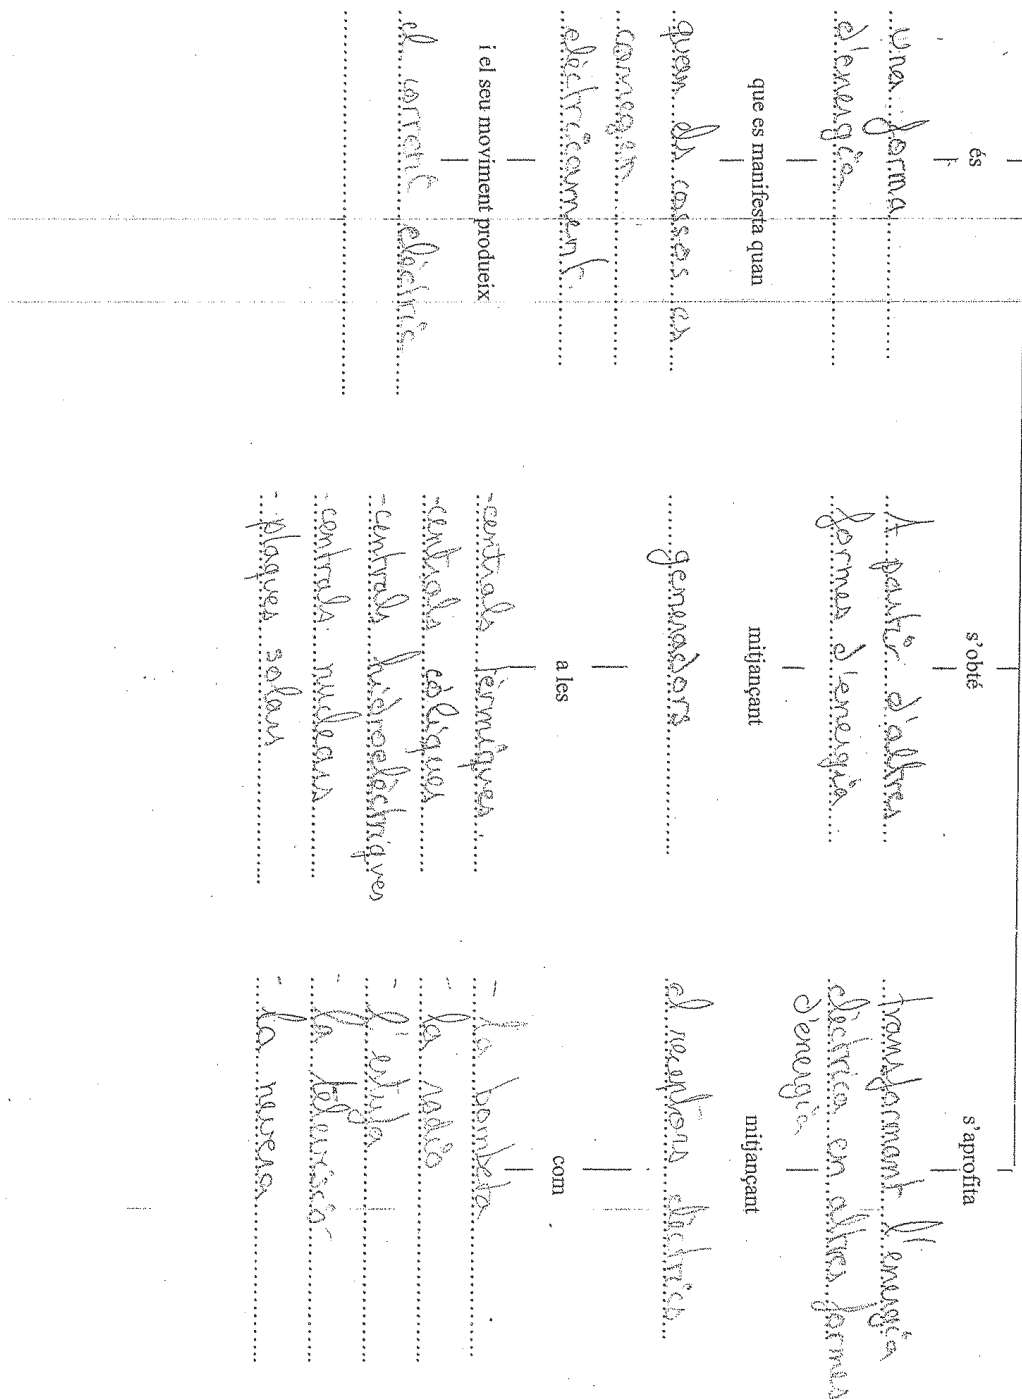 és
una forma
d'energia
que es manifesta quan
quan els cossos es
carregan
elèctricament.
i el seu moviment produeix
el corrent elèctric
s'obté
A partir d'altres
formes d'energia
mitjançant
generadors
a les
-centrals tèrmiques.
-centrals eòliques
-centrals hidroelèctriques
-centrals nuclears
-plaques solars
s'aprofita
transformant l'energia
elèctrica en altres formes
d'energia
mitjançant
el receptors elèctrics
com
- La bombeta
- la radio
- l'estufa
- la televisió
- la nevera